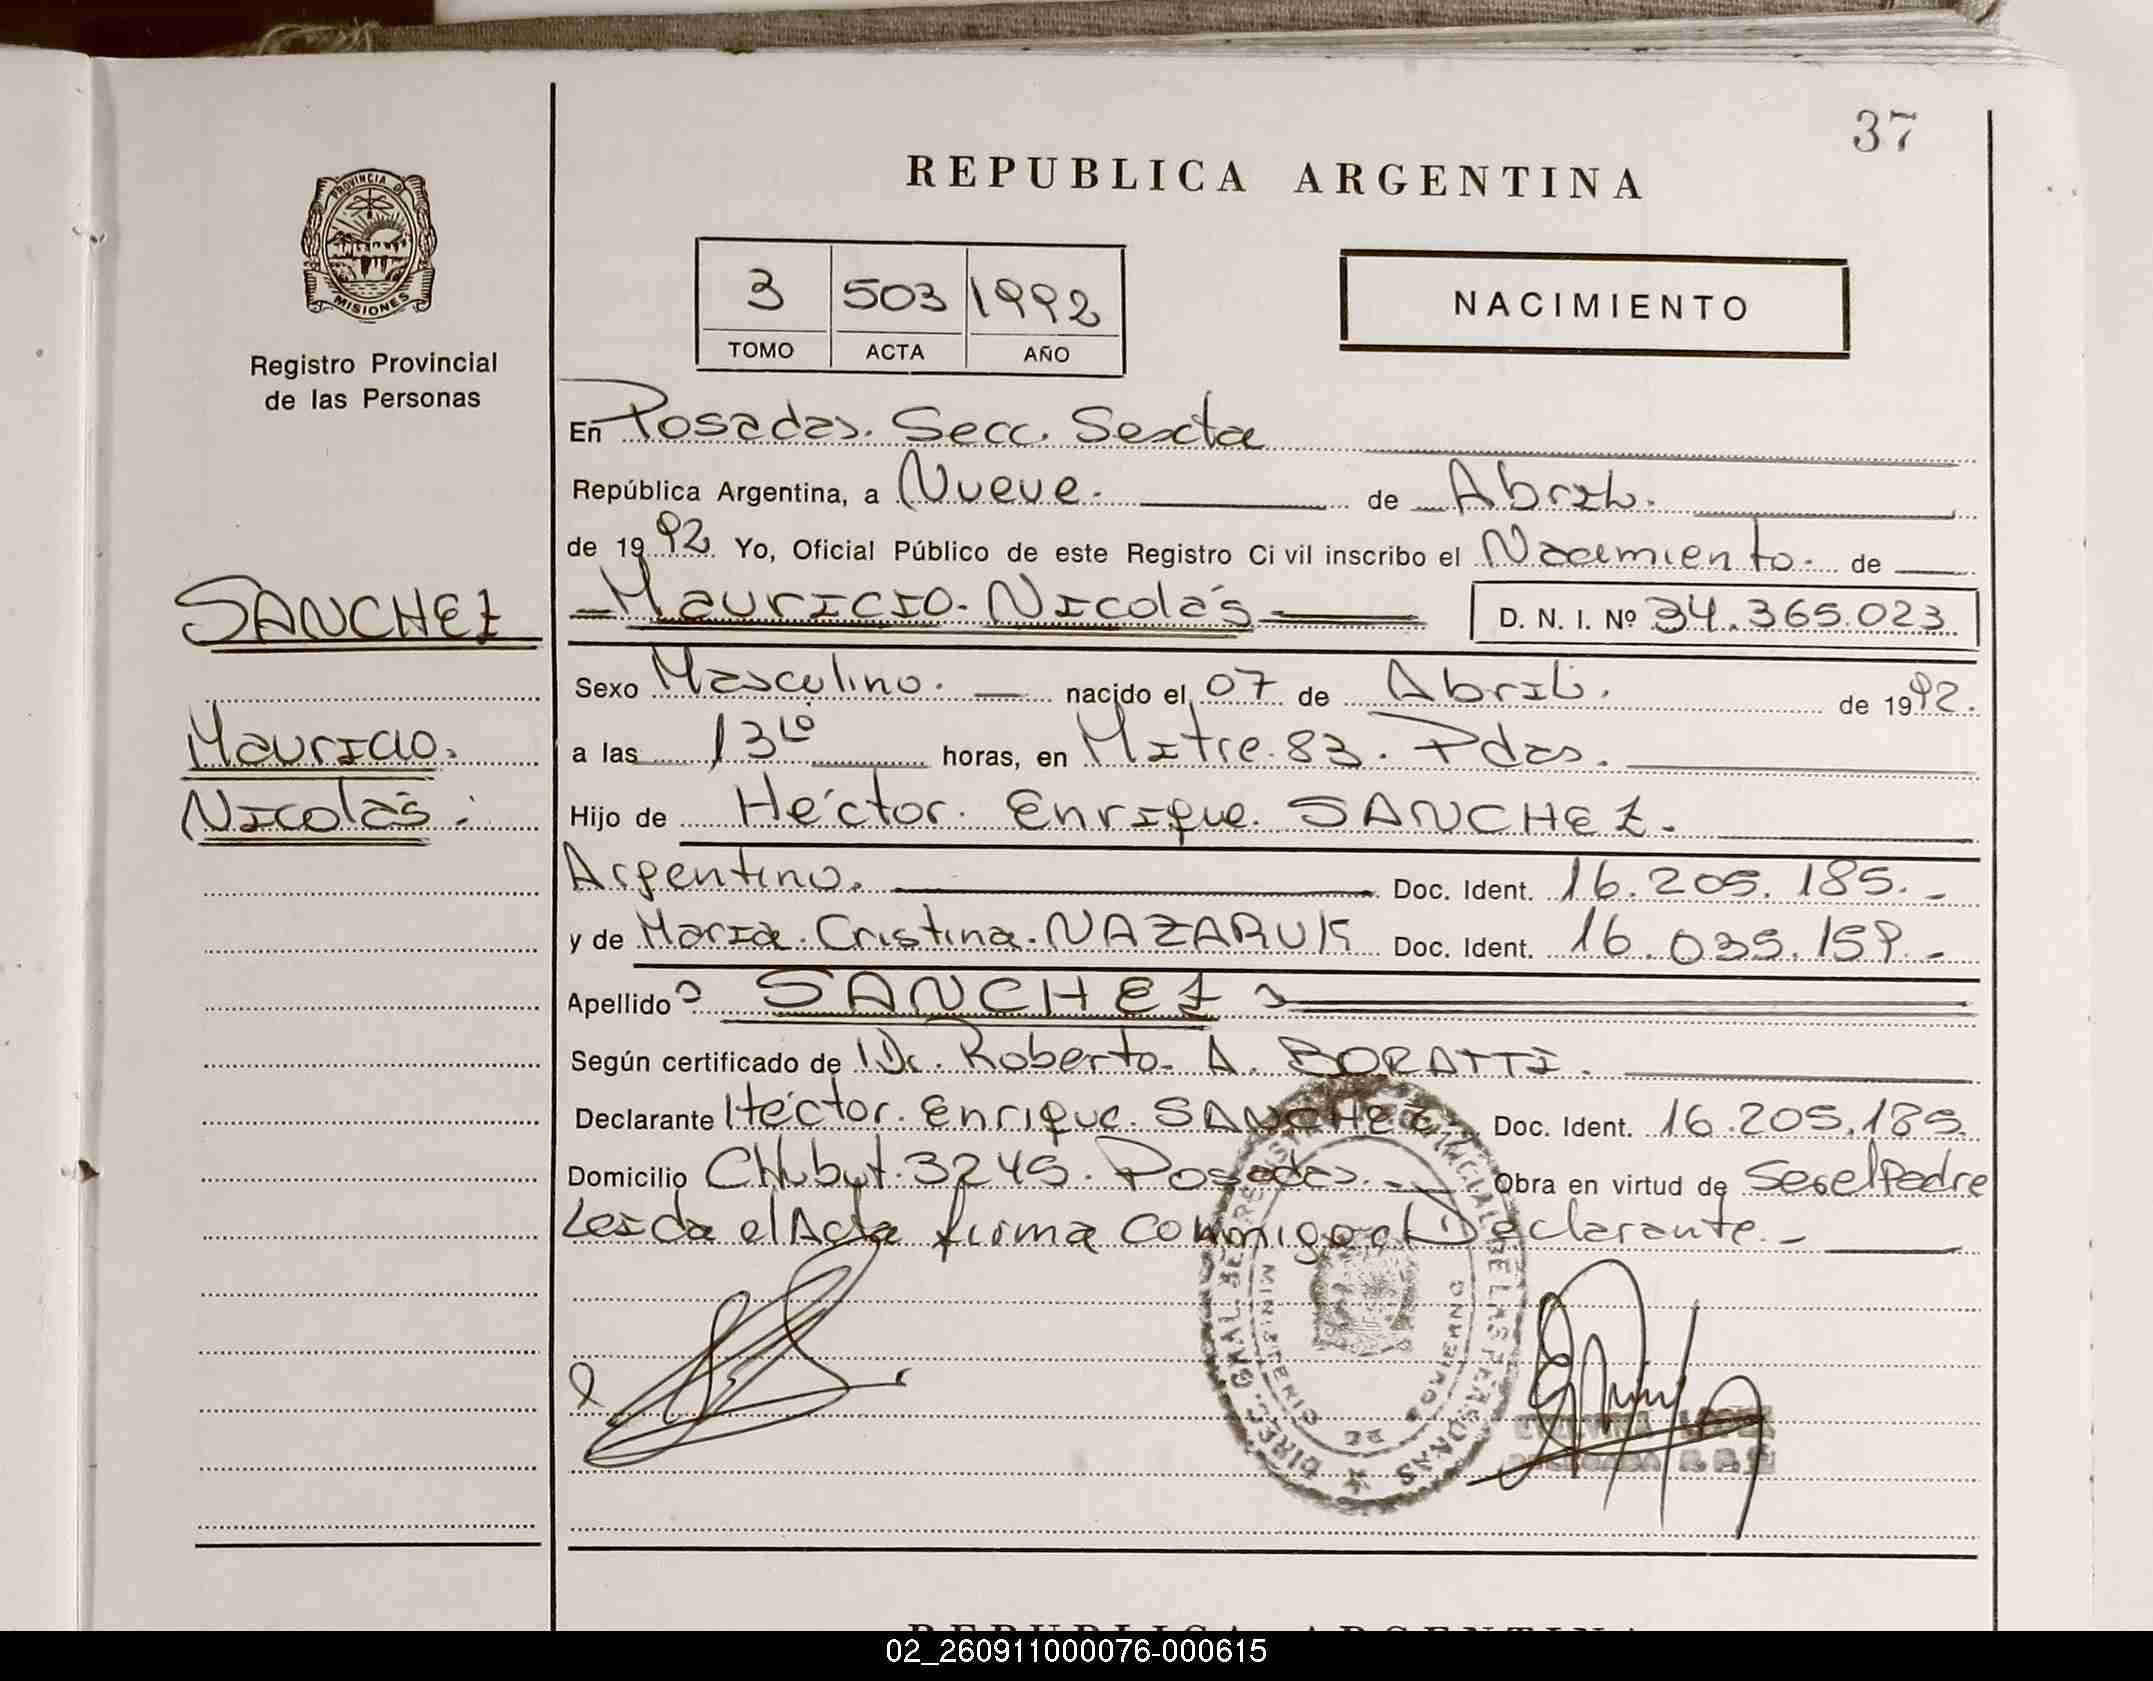 37
REPUBLICA ARGENTINA
PROVINCIA DE
MISIONES
Registro Provincial
de las Personas
3 503 1992
TOMO ACTA AÑO
NACIMIENTO
En Posadas. Secc. Sexta
República Argentina, a Nueve. de Abril.
de 1992. Yo, Oficial Público de este Registro Civil inscribo el Nacimiento. de
SANCHEZ
Mauricio. Nicolás D. N. I. Nº 34.365.023
Sexo Masculino. nacido el 07 de Abril. de 1992.
Mauricio.
a las 13 10 horas, en Mitre. 83. Pdas.
Nicolás.
Hijo de Héctor. Enrique. SANCHEZ.
Argentino. Doc. Ident. 16.205.185.-
y de María. Cristina. NAZARUK Doc. Ident. 16.035.159.-
Apellido SANCHEZ
Según certificado de Dr. Roberto. A. BORATTI.
Declarante Héctor. Enrique. SANCHEZ. Doc. Ident. 16.205.185.
Domicilio Chubut. 3245. Posadas. Obra en virtud de Ser el Padre
Leida el Acta firma conmigo el Declarante.-
DIREC. GRAL DE REGISTRO PROVINCIAL DE LAS PERSONAS
MINISTERIO DE GOBIERNO
LOPEZ
REPUBLICA ARGENTINA
02_260911000076-000615